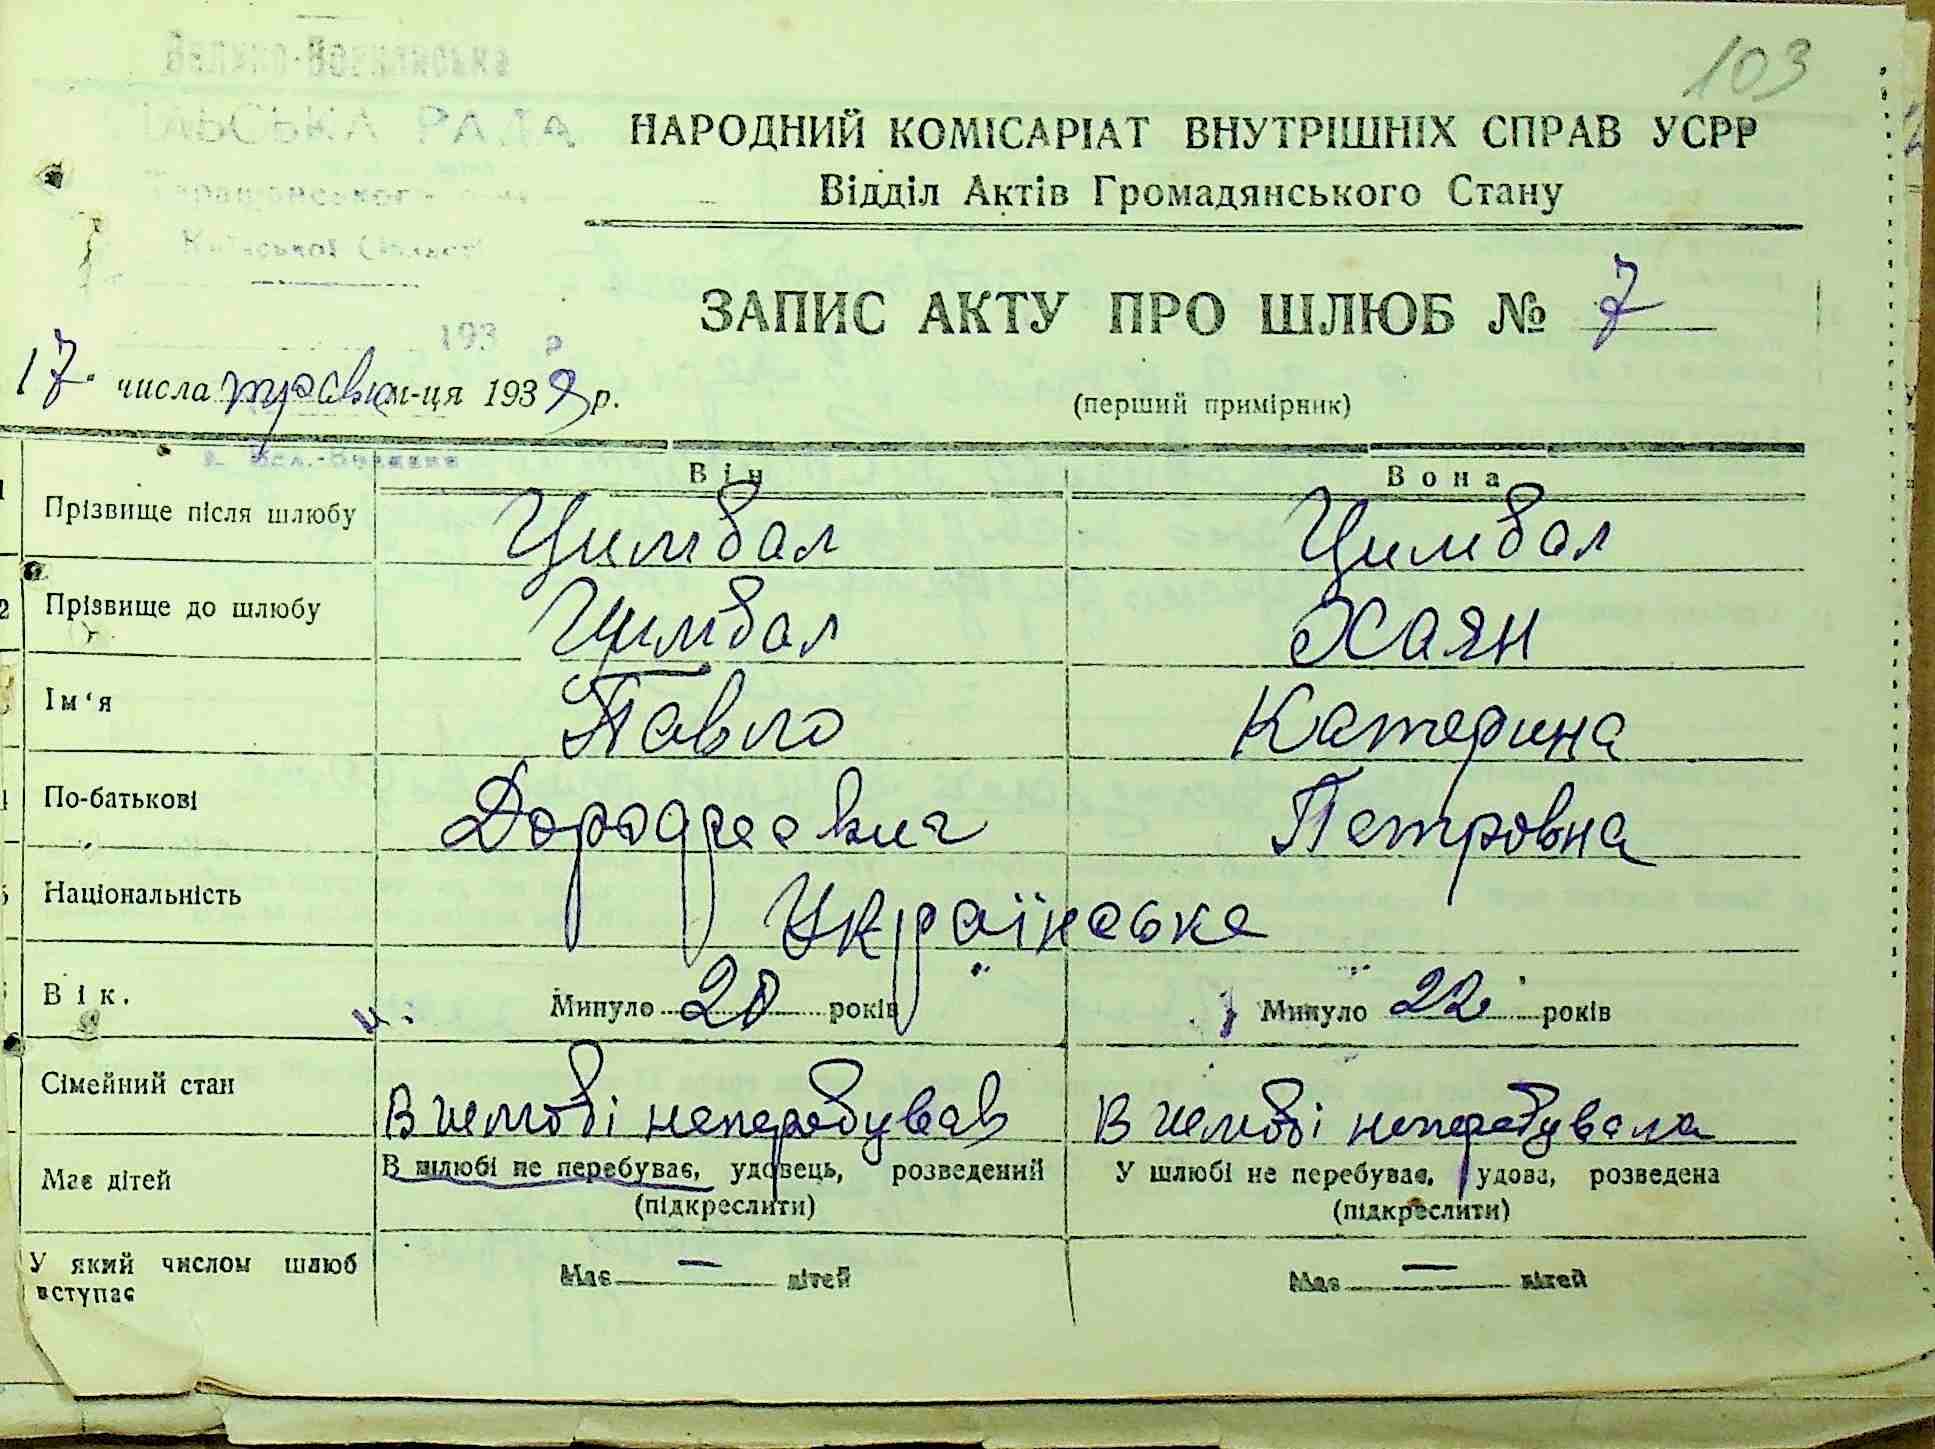 103
СІЛЬСЬКА РАДА
Таращанського
Київської Области
193 р
НАРОДНИЙ КОМІСАРІАТ ВНУТРІШНІХ СПРАВ УСРР
Відділ Актів Громадянського Стану
ЗАПИС АКТУ ПРО ШЛЮБ № 7
17 числа травня м-ця 193 р.
(перший примірник)
Він Вона
1 Прізвище після шлюбу Цимбал Цимбал
2 Прізвище до шлюбу Цимбал Хаян
Ім‘я Павло Катерина
4 По-батькові Дорофеевич Петровна
5 Національність Українське
Вік. Минуло 20 років Минуло 22 років
Сімейний стан В шлюбі неперебував В шлюбі неперебувала
Має дітей В шлюбі не перебуває, удовець, розведений У шлюбі не перебуває, удова, розведена
(підкреслити) (підкреслити)
У який числом шлюб Має — дітей Має — дітей
вступає